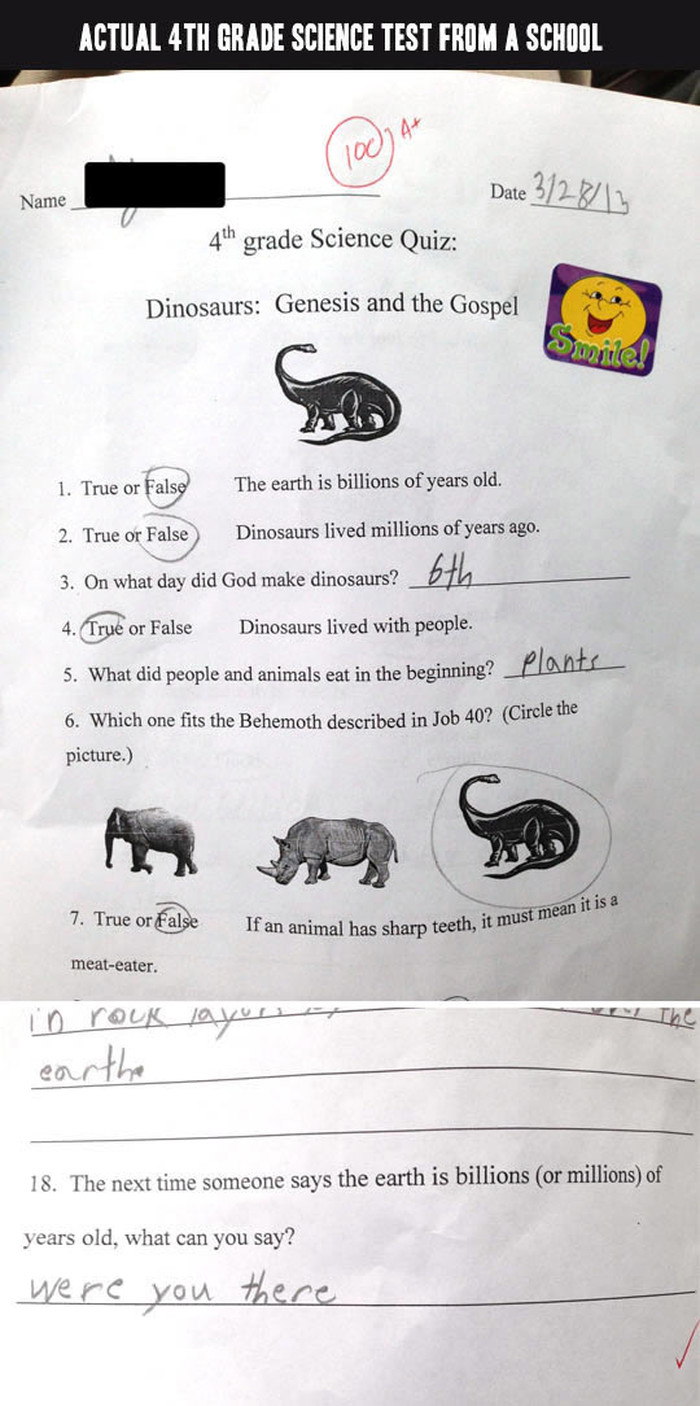 ACTUAL 4TH GRADE SCIENCE TEST FROM A SCHOOL
100 A+
Name
Date 3/28/13
4th grade Science Quiz:
Dinosaurs: Genesis and the Gospel
Smile!
1. True or False The earth is billions of years old.
2. True or False Dinosaurs lived millions of years ago.
3. On what day did God make dinosaurs? 6th
4. True or False Dinosaurs lived with people.
5. What did people and animals eat in the beginning? Plants
6. Which one fits the Behemoth described in Job 40? (Circle the
picture.)
7. True or False If an animal has sharp teeth, it must mean it is a
meat-eater.
in rock layers the
earth.
18. The next time someone says the earth is billions (or millions) of
years old, what can you say?
were you there